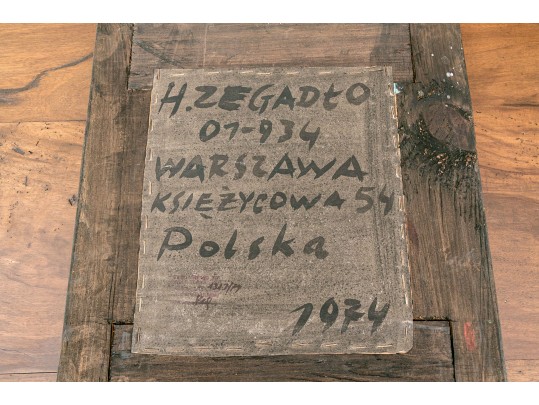 H. ZEGADŁO
01-934
WARSZAWA
KSIĘŻYCOWA 54
Polska
1974